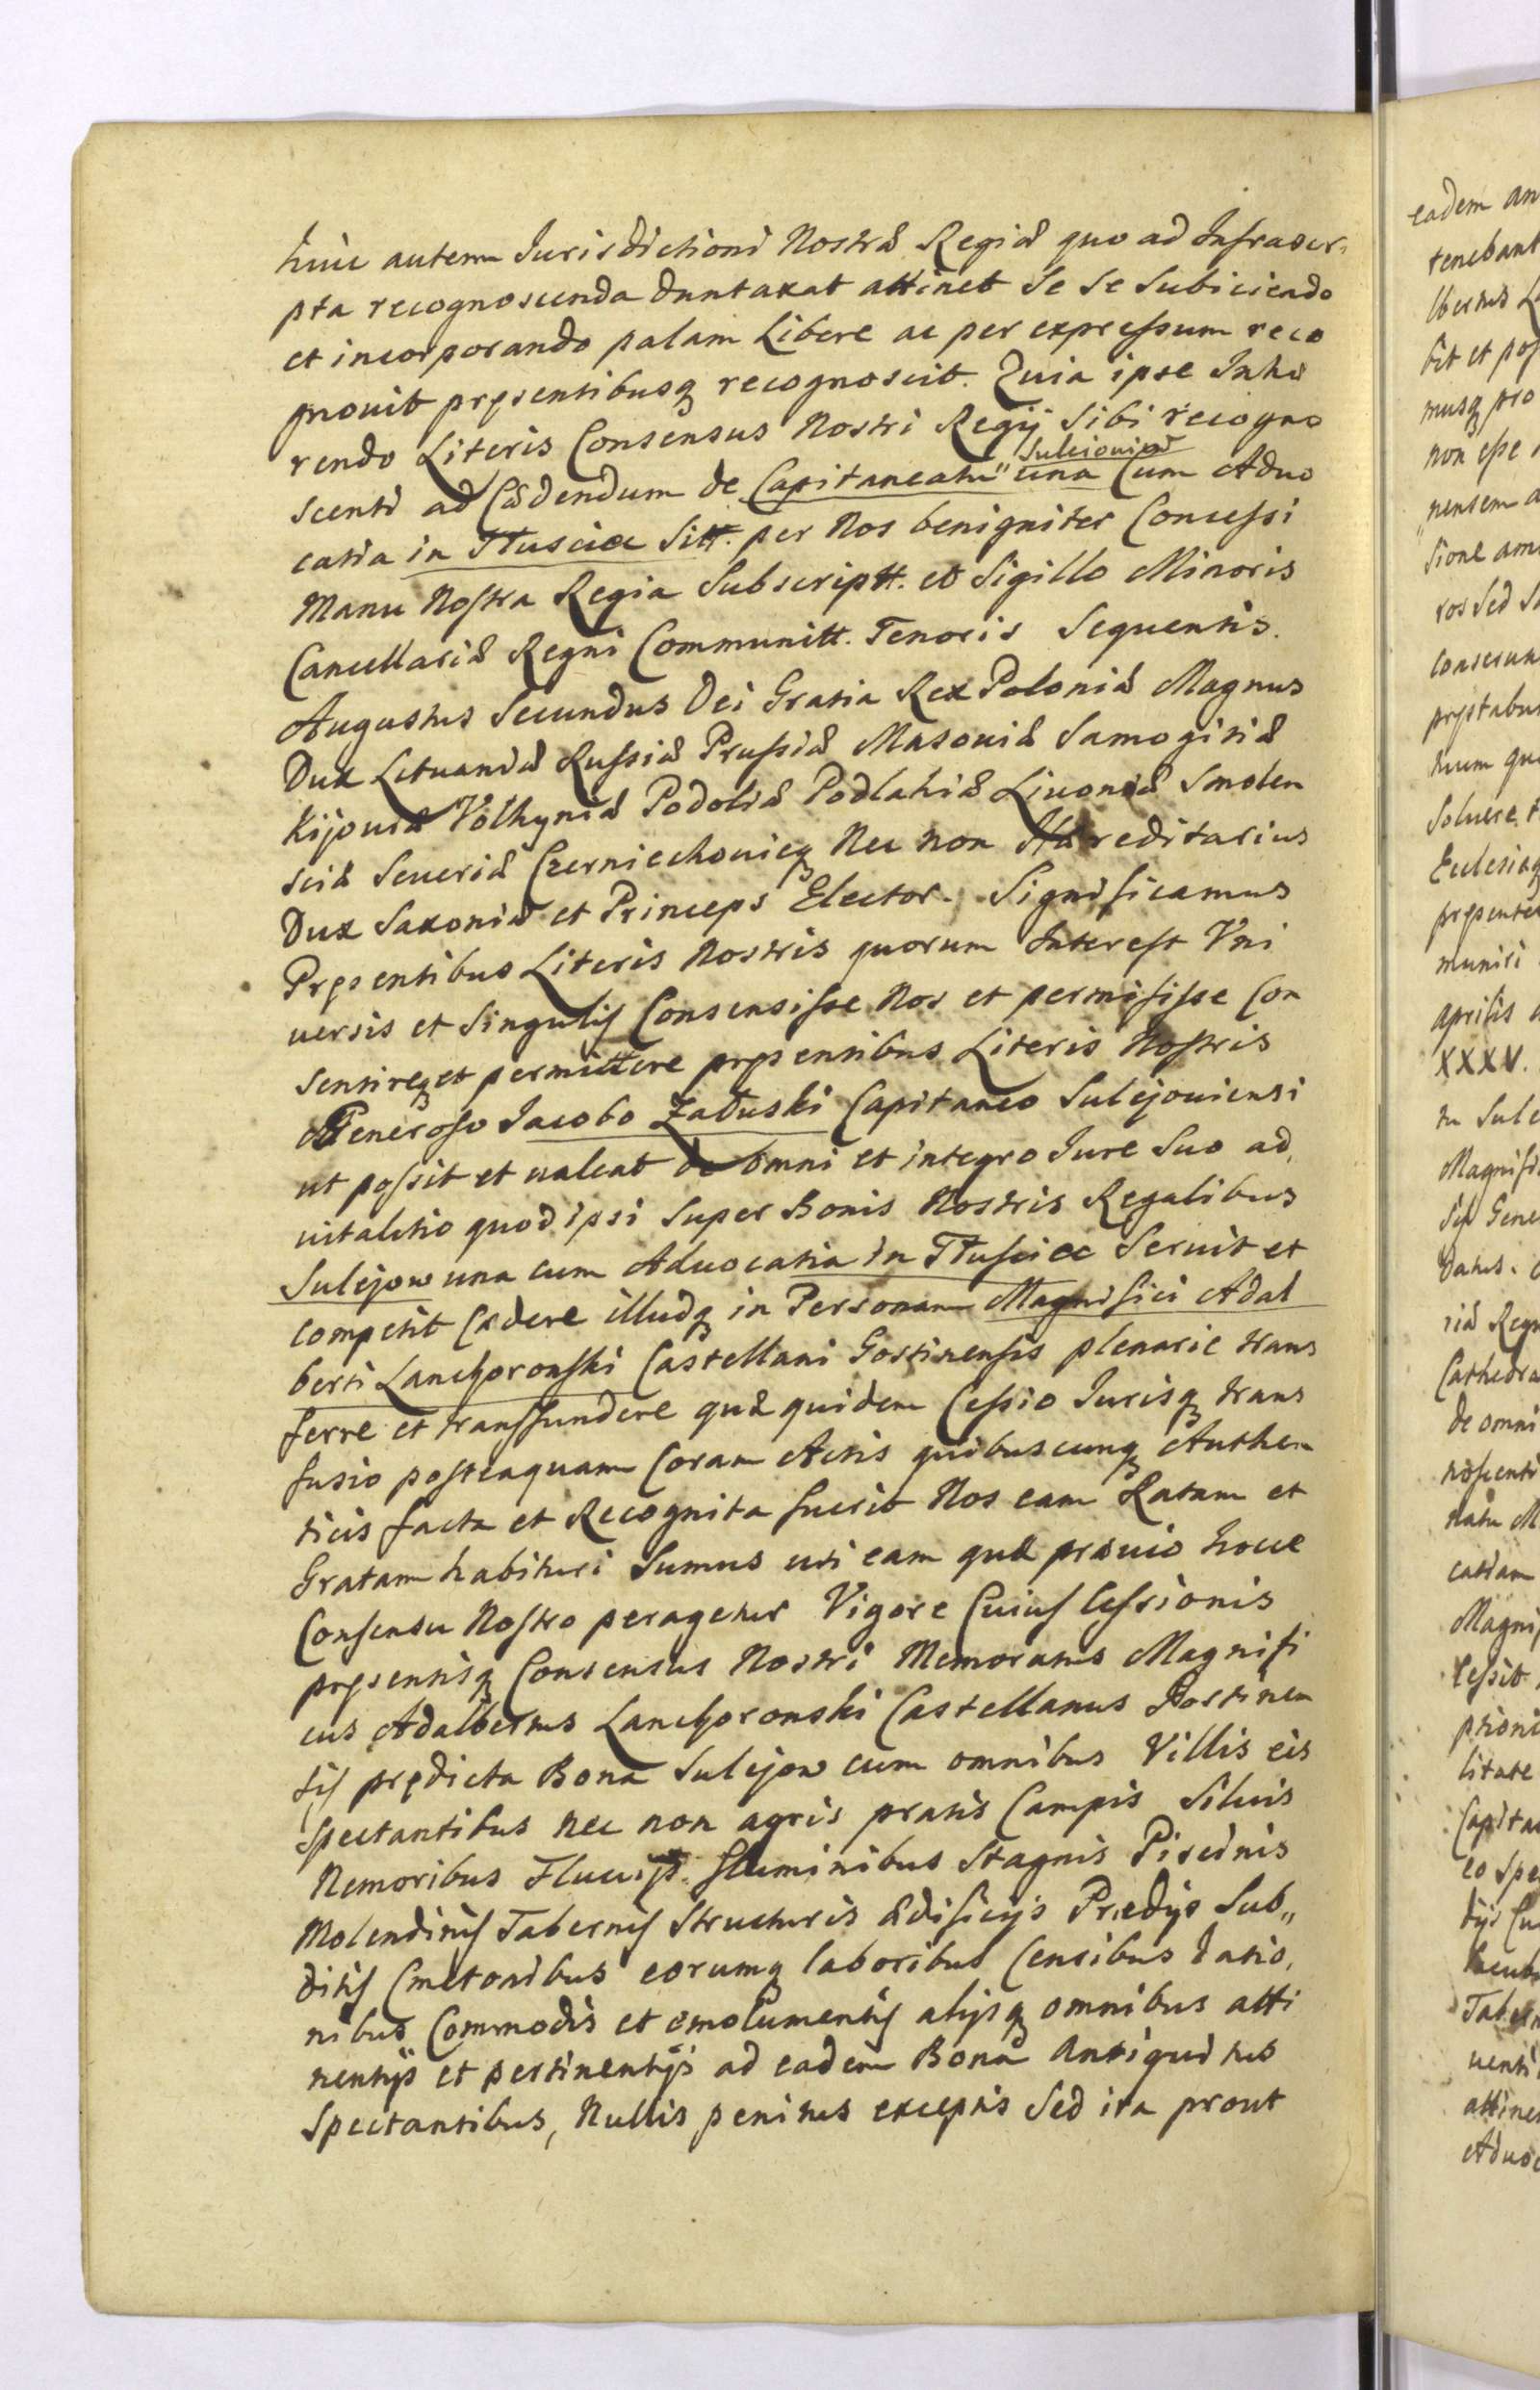 huic autem Jurisdictioni Nostræ Regiæ quo ad Infrascri-
pta recognoscenda duntaxat attinet se se subiiciendo
et incorporando palam Libere ac per expressum reco
gnouit pręsentibusq recognoscit. Quia ipse Inhæ
rendo Literis Consensus Nostri Regij Sibi recogno
Suleiouiens̄
scenti ad Cædendum de Capitaneatu" una Cum Aduo
catia in Tłuscice Sitt. per Nos benigniter Concessi
Manu Nostra Regia Subscriptt. et Sigillo Minoris
Cancellariæ Regni Communitt. Tenoris Sequentis.
Augustus Secundus Dei Gratia Rex Poloniæ Magnus
Dux Lituaniæ Russiæ Prussiæ Masouiæ Samogitiæ
Kijouiæ Volhyniæ Podoliæ Podlahiæ Liuoniæ Smolen
sciæ Seueriæ Czerniechouieq Nec non Hæreditarius
Dux Saxoniæ et Princeps Elector. Significamus
Pręsentibus Literis Nostris quorum Interest Vni
uersis et Singulis Consensisse Nos et permisisse Con
sentireq et permittere pręsentibus Literis Nostris
Generoso Jacobo Załuski Capitaneo Sulejouiensi
ut possit et ualeat de omni et integro Jure Suo ad
uitalitio quod ipsi Super Bonis Nostris Regalibus
Sulejow una cum Aduocatia in Tłuscice Seruit et
competit Cædere illudq in Personam Magnifici Adal
berti Lanckoronski Castellani Gostinensis plenarie trans
ferre et transfundere quæ quidem Cessio Jurisq trans
fusio posteaquam Coram Actis quibuscunq Authen
ticis facta et Recognita fuerit Nos eam Ratam et
Gratam habituri Sumus uti eam quæ præuio hocce
Consensu Nostro peragetur Vigore Cuius Cessionis
pręsentisq Consensus Nostri Memoratus Magnifi
cus Adalbertus Lanckoronski Castellanus Gostinen
sis prędicta Bona Sulejow cum omnibus Villis eis
spectantibus nec non agris pratis Campis Siluis
Nemoribus Fluuijs fluminibus Stagnis Piscinis
Molendinis Tabernis Structuris ædificijs Prædijs Sub„
ditis Cmetonibus eorumq laboribus Censibus datio,
nibus Commodis et emolumentis alijsq omnibus atti
nentijs et pertinentijs ad eadem Bona Antiquitus
Spectantibus, Nullis penitus exceptis Sed ita prout
eadem an
tenebant
bit et pos
musq pro
non esse
nensem a
sione am
ros Sed
munici
Aprilis
XXXV.
tu Sule
Magnifi
Datus.
riæ Regn
Cathedra
de omni
natu M
catiam
Magni
Cessit
litate
Capita
eo Spe
Tabern
uenti
attine
Aduoc